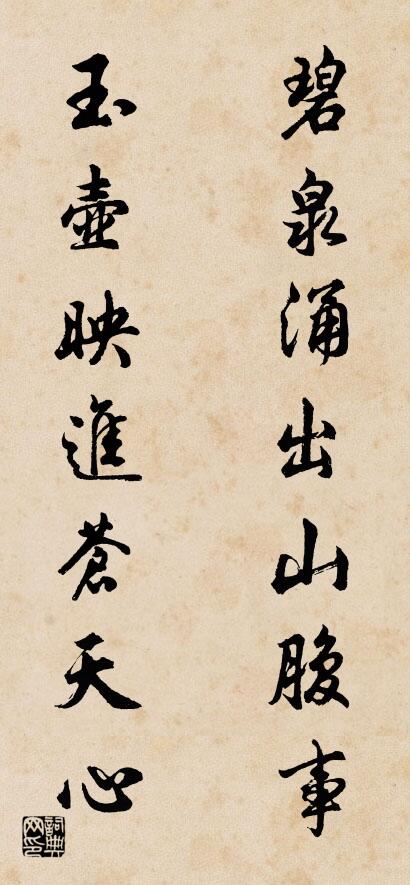 碧泉涌出山腹事
玉壺映進蒼天心
詞典网印